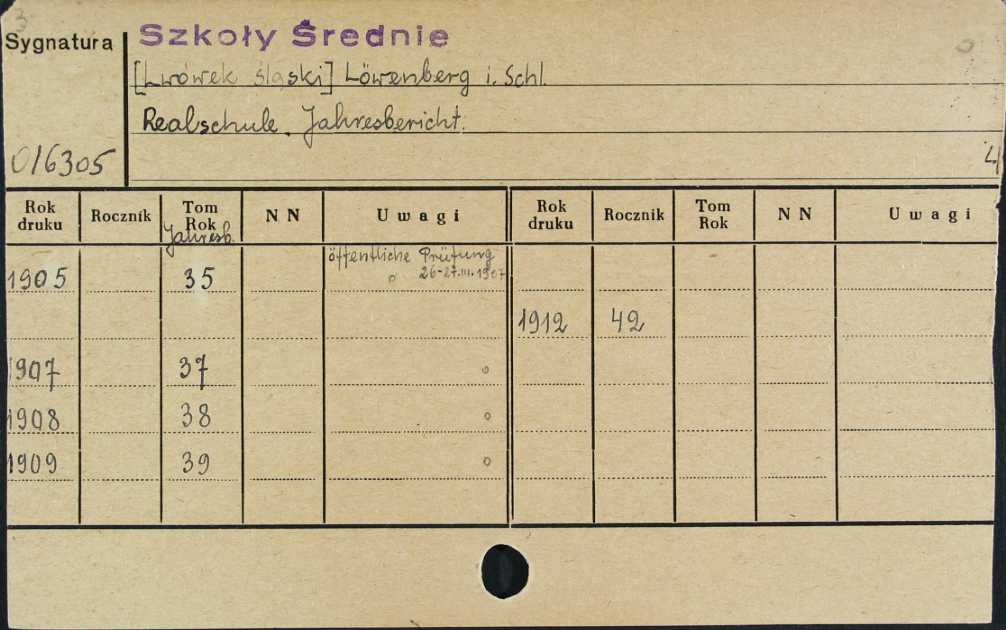 3
Sygnatura
Szkoły Średnie
[Lwówek śląski] Löwenberg i. Schl.
Realschule. Jahresbericht.
016305
4
Rok druku Rocznik Tom Rok NN Uwagi Rok druku Rocznik Tom Rok NN Uwagi
Jahresb.
öffentliche Prüfung
1905 35 26-27.III.1907
1912 42
1907 37
1908 38
1909 39